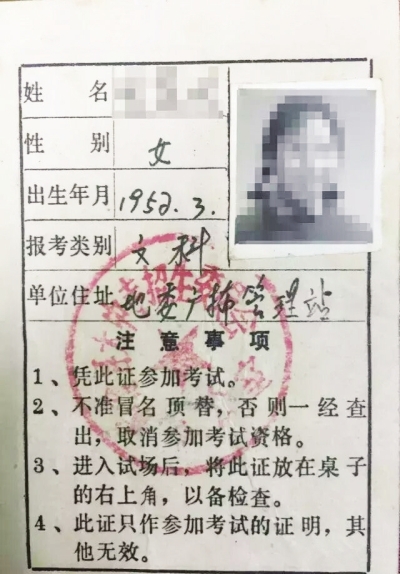 姓 名
性 别 女
出生年月 1952.3.
报考类别 文科
单位住址 地委广播管理站
注意事项
1、凭此证参加考试。
2、不准冒名顶替，否则一经查
出，取消参加考试资格。
3、进入试场后，将此证放在桌子
的右上角，以备检查。
4、此证只作参加考试的证明，其
他无效。
招生